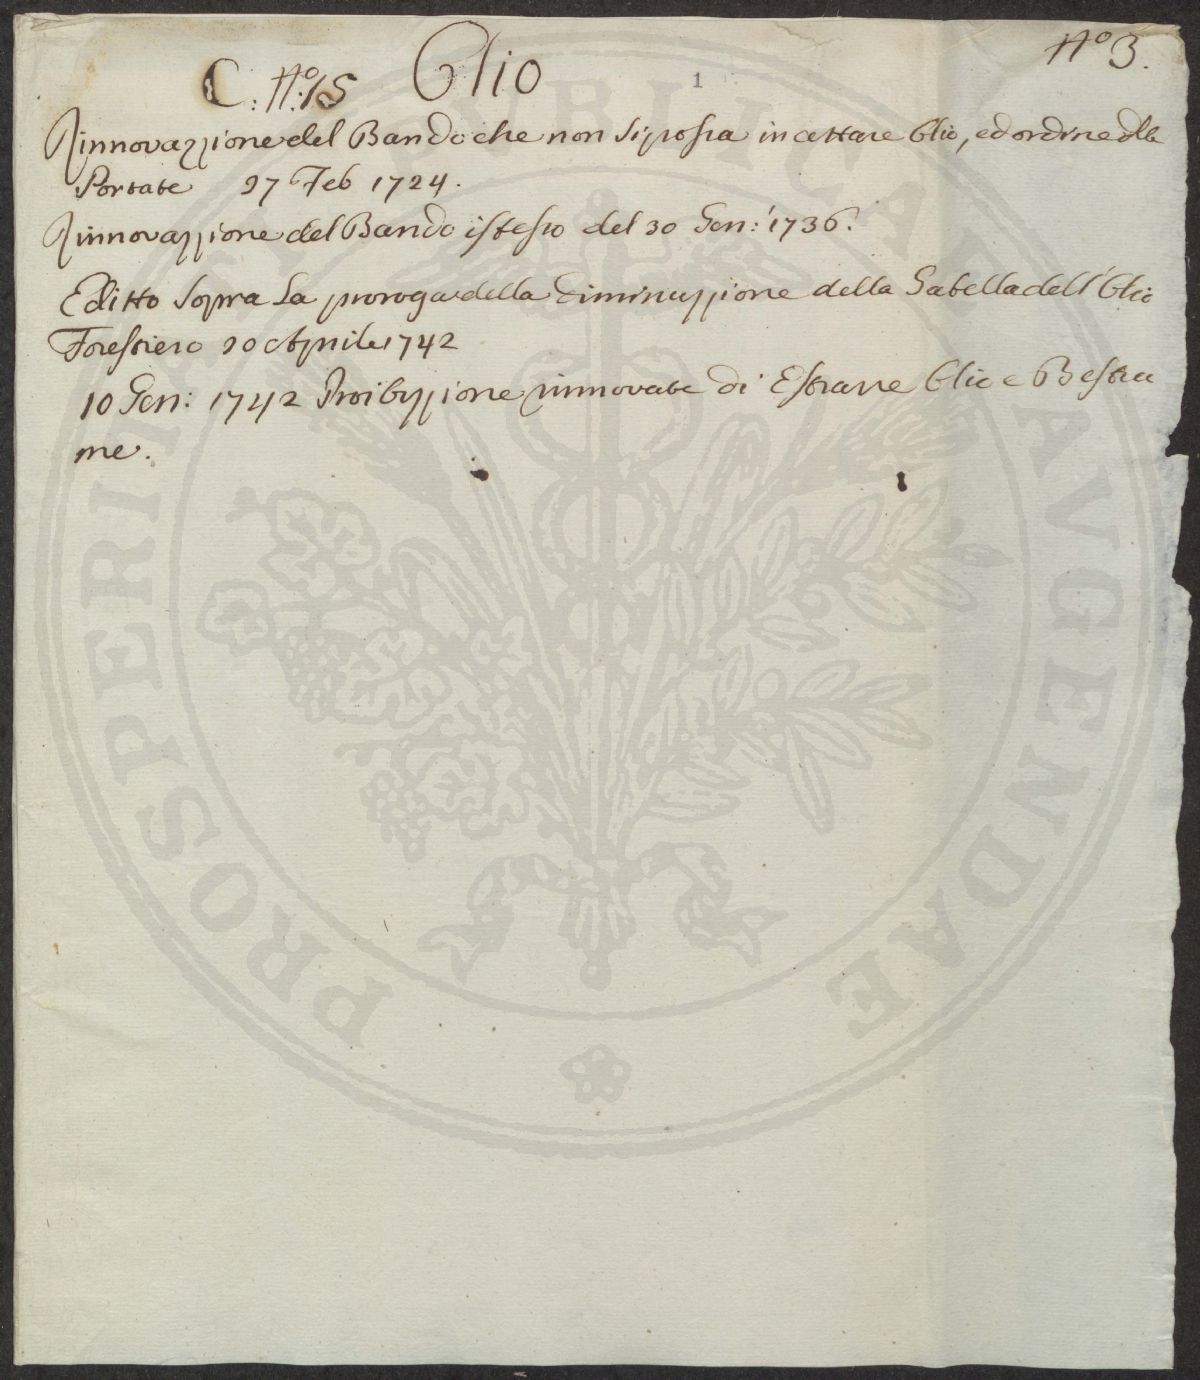 Nº 3.
C: Nº: 15 Olio
1
Rinnovazzione del Bando che non si possa incettare Olio, ed ordine dlle
Portate 27 Feb 1724.
Rinnovazzione del Bando istesso del 30 Gen: 1736.
Editto Sopra La proroga della Diminuzzione della Gabella dell' Olio
Forestiero 20 Aprile 1742
10 Gen: 1742 Proibizzione rinnovate di Estrarre Olio e Bestia
me.
PROSPERITATI PUBLICAE AVGENDAE